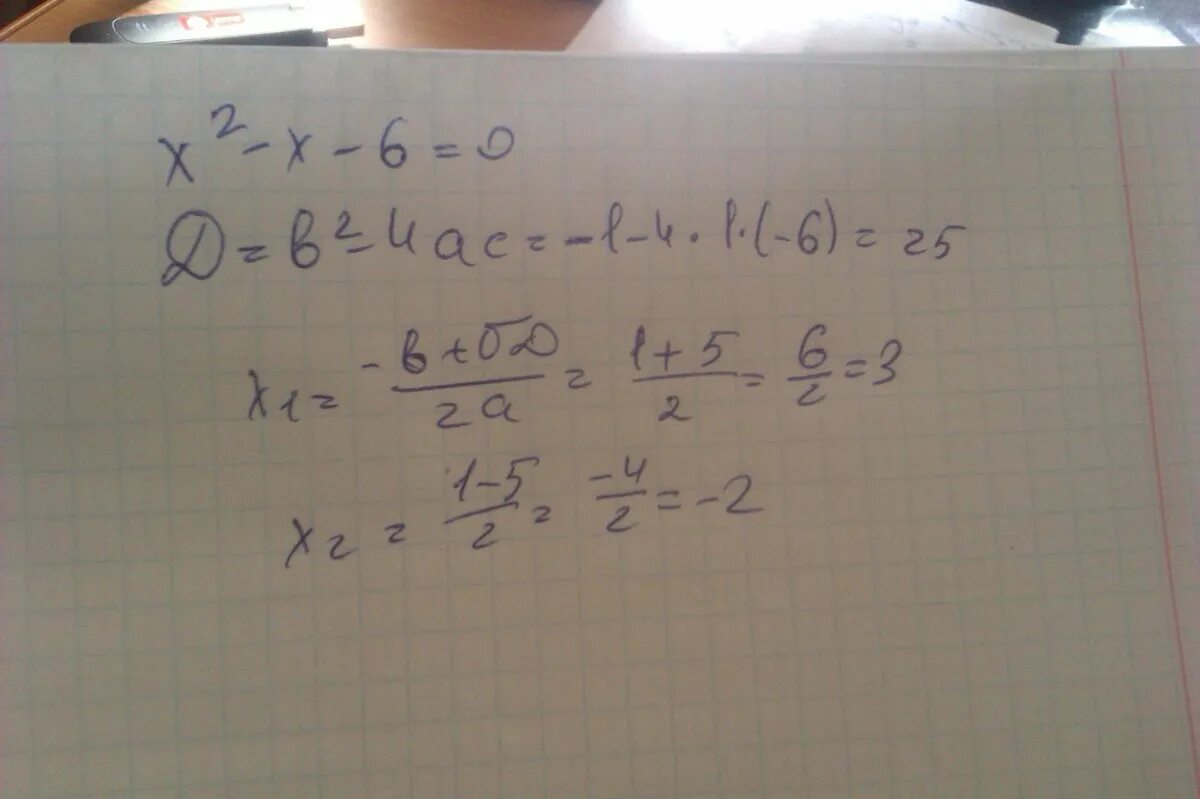 x² - x - 6 = 0
D = в² - 4ac = -1 - 4 · 1 · (-6) = 25
x₁ = (-в + √D)/(2a) = (1 + 5)/2 = 6/2 = 3
x₂ = (1 - 5)/2 = -4/2 = -2